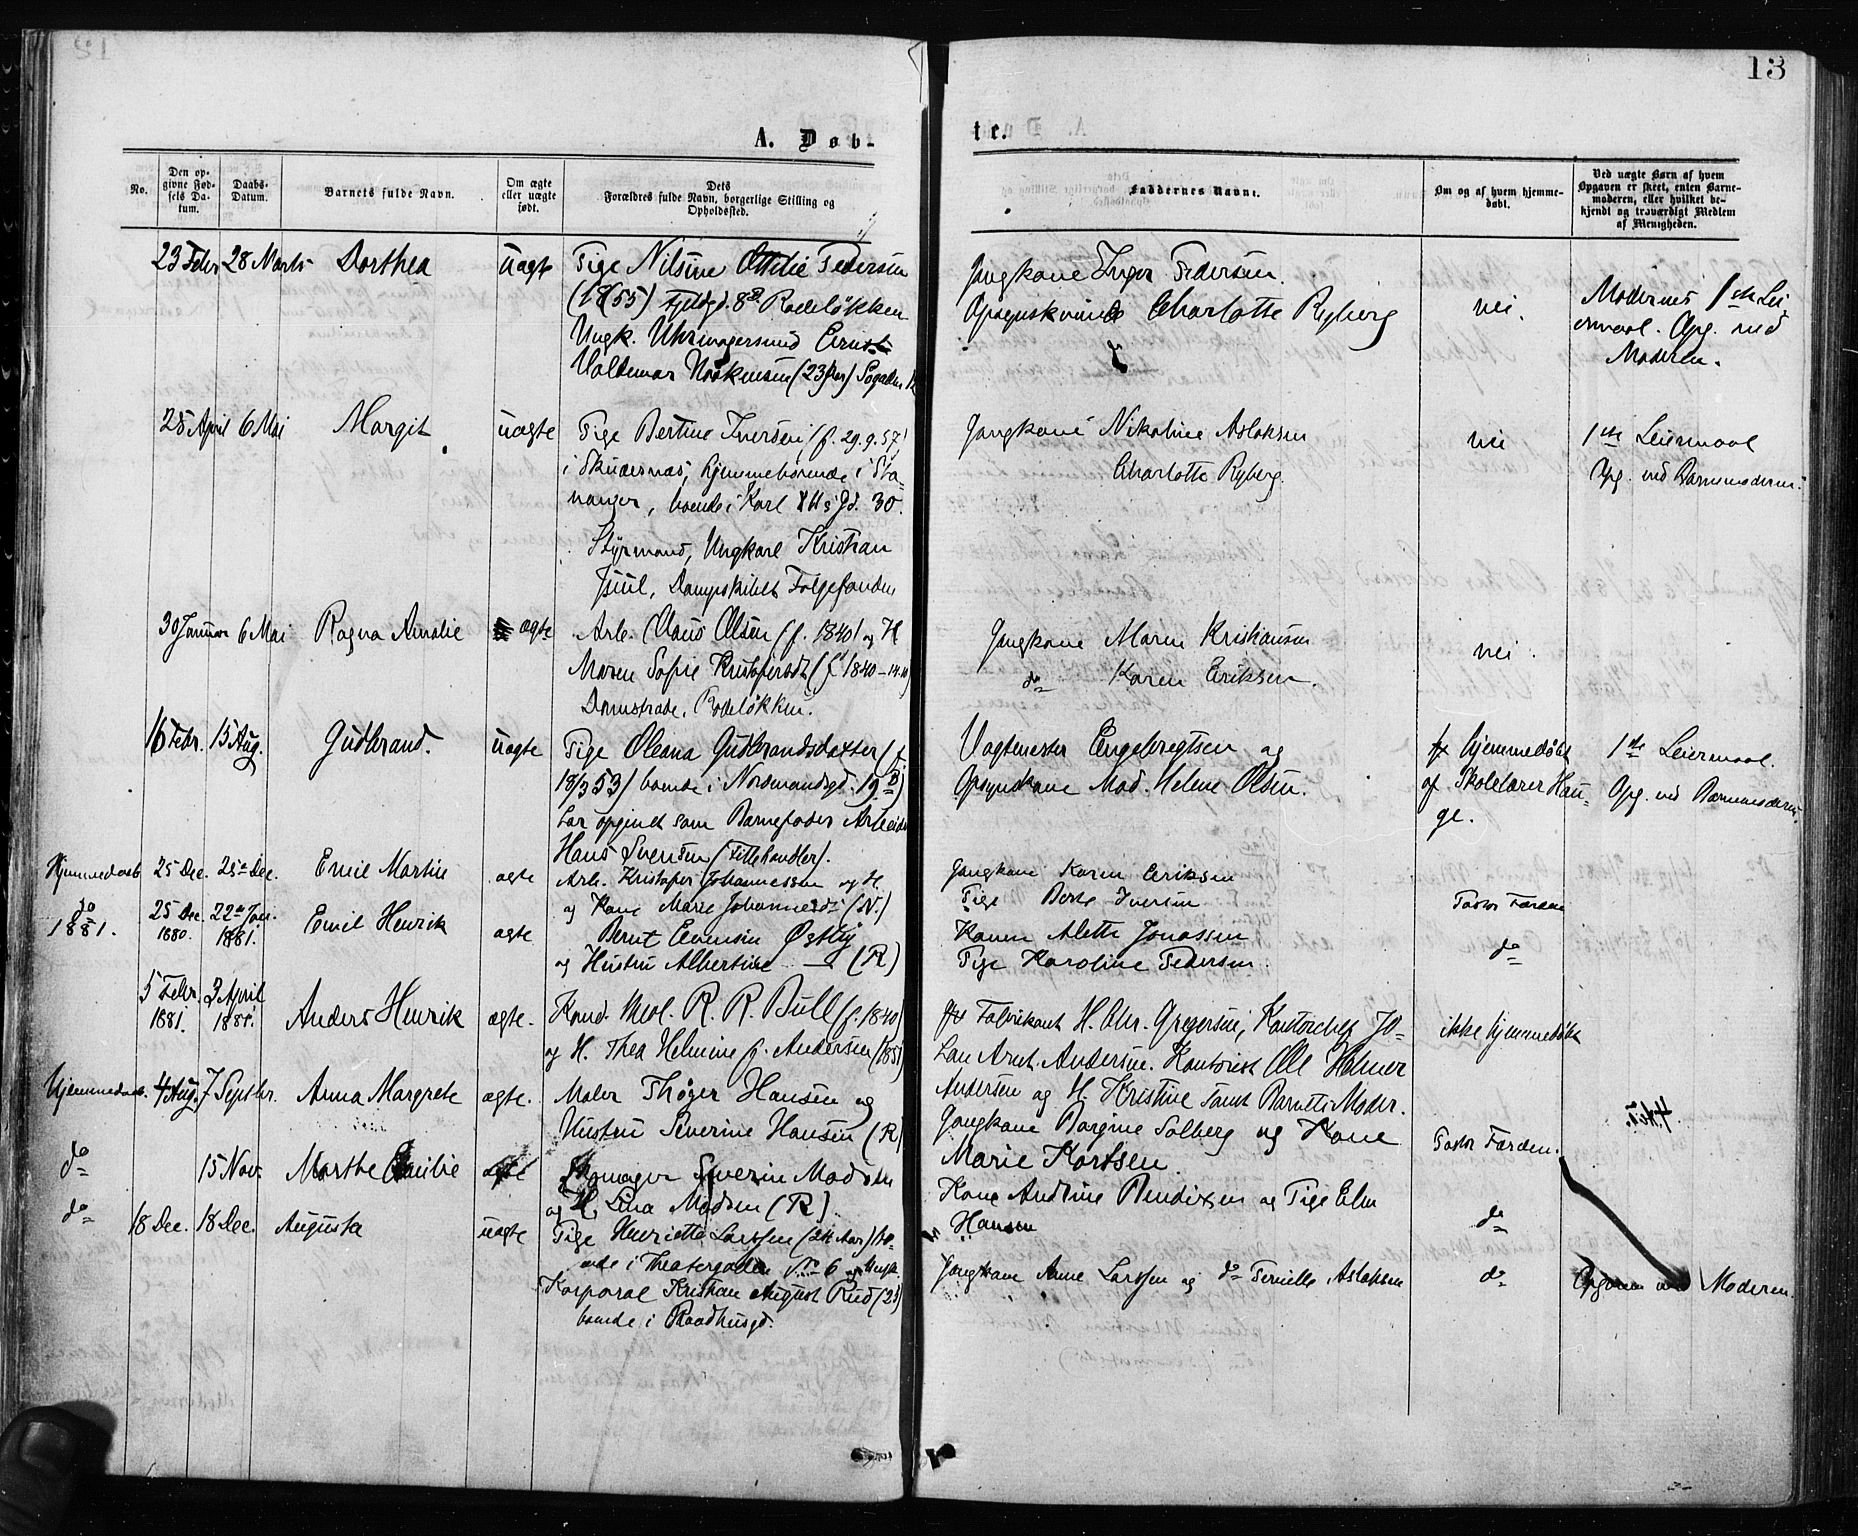 13
A. Døb-
te.
No.
Den opgivne Fødsels Datum.
Daabs-Datum.
Barnets fulde Navn.
Om ægte eller uægte født.
Dets Forældres fulde Navn, borgerlige Stilling og Opholdssted.
Faddernes Navne.
Om og af hvem hjemmedøbt.
Ved uægte Børn af hvem Opgaven er skeet, enten Barnemoderen, eller hvilket bekjendt og troværdigt Medlem af Menigheden.
23 Febr 28 Marts Dorthea uægte Pige Nilsine Ottilie Pedersen
(18/ 55) Fjeldgd. 8 B. Rodeløkken
Ungk. Uhrmagersvend Ernst
Valdemar (23 Aar)
Gangkone Inger Pedersen.
Opsynskvinde Charlotte Ryberg
nei.
Moderens 1ste Lei
ermaal. Opg. ved
Moderen.
28 April 6 Mai Margit uægte Pige Bertine Iversen (f. 29.9.57)
i Skudesnæs, hjemmehørende i Sta-
vanger, boende i Karl XIIs Gd. 30.
Styrmand, Ungkarl Kristian
Juul, Dampskibet Folgefonden
Gangkone Nikoline Aslaksen
Charlotte Ryberg.
nei
1ste Leiermaal
Opg. ved Barnemoderen.
30 Januar 6 Mai Ragna Amalie ægte Arb. Claus Olsen (f. 1840) og H
Maren Sofie Kristofersdt (f. 1840
Rodeløkken.
Gangkone Maren Kristiansen
do Karen Eriksen.
nei.
16 Febr. 15 Aug. Gudbrand. uægte Pige Oleana Gudbrandsdatter (f.
18/3 53) boende i Normandsgd. 19 B)
har opgivet som Barnefader Arbeider
Hans Svensen (Fillehandler).
Vagtmester Engebregtsen og
Opsynskone Mad. Helene Olsen.
hjemmedøbt
af Skolelærer Hau-
ge.
1ste Leiermaal.
Opg. ved Barnemoderen.
Hjemmedøbt 25 Dec. 25de Dec. Emil Martin ægte Arb. Kristofer Johannessen og H.
og Kone Marie Johannesdt (N.)
Gangkone Karen Eriksen
Pige Berte Iversen
Pastor Færden
do
1881. 25 Dec. 1880. 22de Jan. 1881. Emil Henrik ægte Bernt Evensen Østby
og Hustru Albertine — (R)
Karen Alette Jonassen
Pige Karoline Pedersen.
do
5 Febr. 1881. 3 April 1881. Anders Henrik ægte. Kand. theol. R. R. Bull (f. 1840)
og H. Thea Helmine f. Andersen (1851
Fabrikant H. Chr. Gregersen, Kontorchef Jo-
han Arnt Andersen. Kontorist Ole Helmer
Andersen og H. Kristine samt Barnets Moder.
ikke hjemmedøbt
Hjemmedøbt. 4 Aug. 7 Septbr. Anna Margrete ægte. Maler Thøger Hansen og
Hustru Severine Hansen (R)
Gangkone Bargine Solberg og Kone
Marie Kortsen.
Pastor Færden.
do 15 Nov. Marthe Emilie ægte Skomager Severin Madsen
og H. Lina Madsen (R)
Kone Andrine Bendixen og Pige Elen
Hansen
do
do 18 Dec. 18 Dec. Augusta uægte Pige Henriette Larssen (24 Aar) bo-
ende i Theatergaden No 6 og Ungk.
Korporal Kristian August Ruud (2
boende i Raadhusgd.
Gangkone Anne Larssen og do Pernille Aslaksen
do
Opgaven ved Moderen.